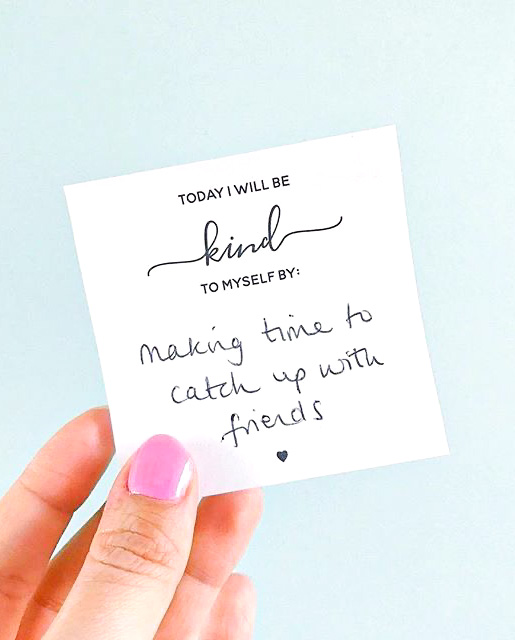 TODAY I WILL BE
kind
TO MYSELF BY:
making time to
catch up with
friends